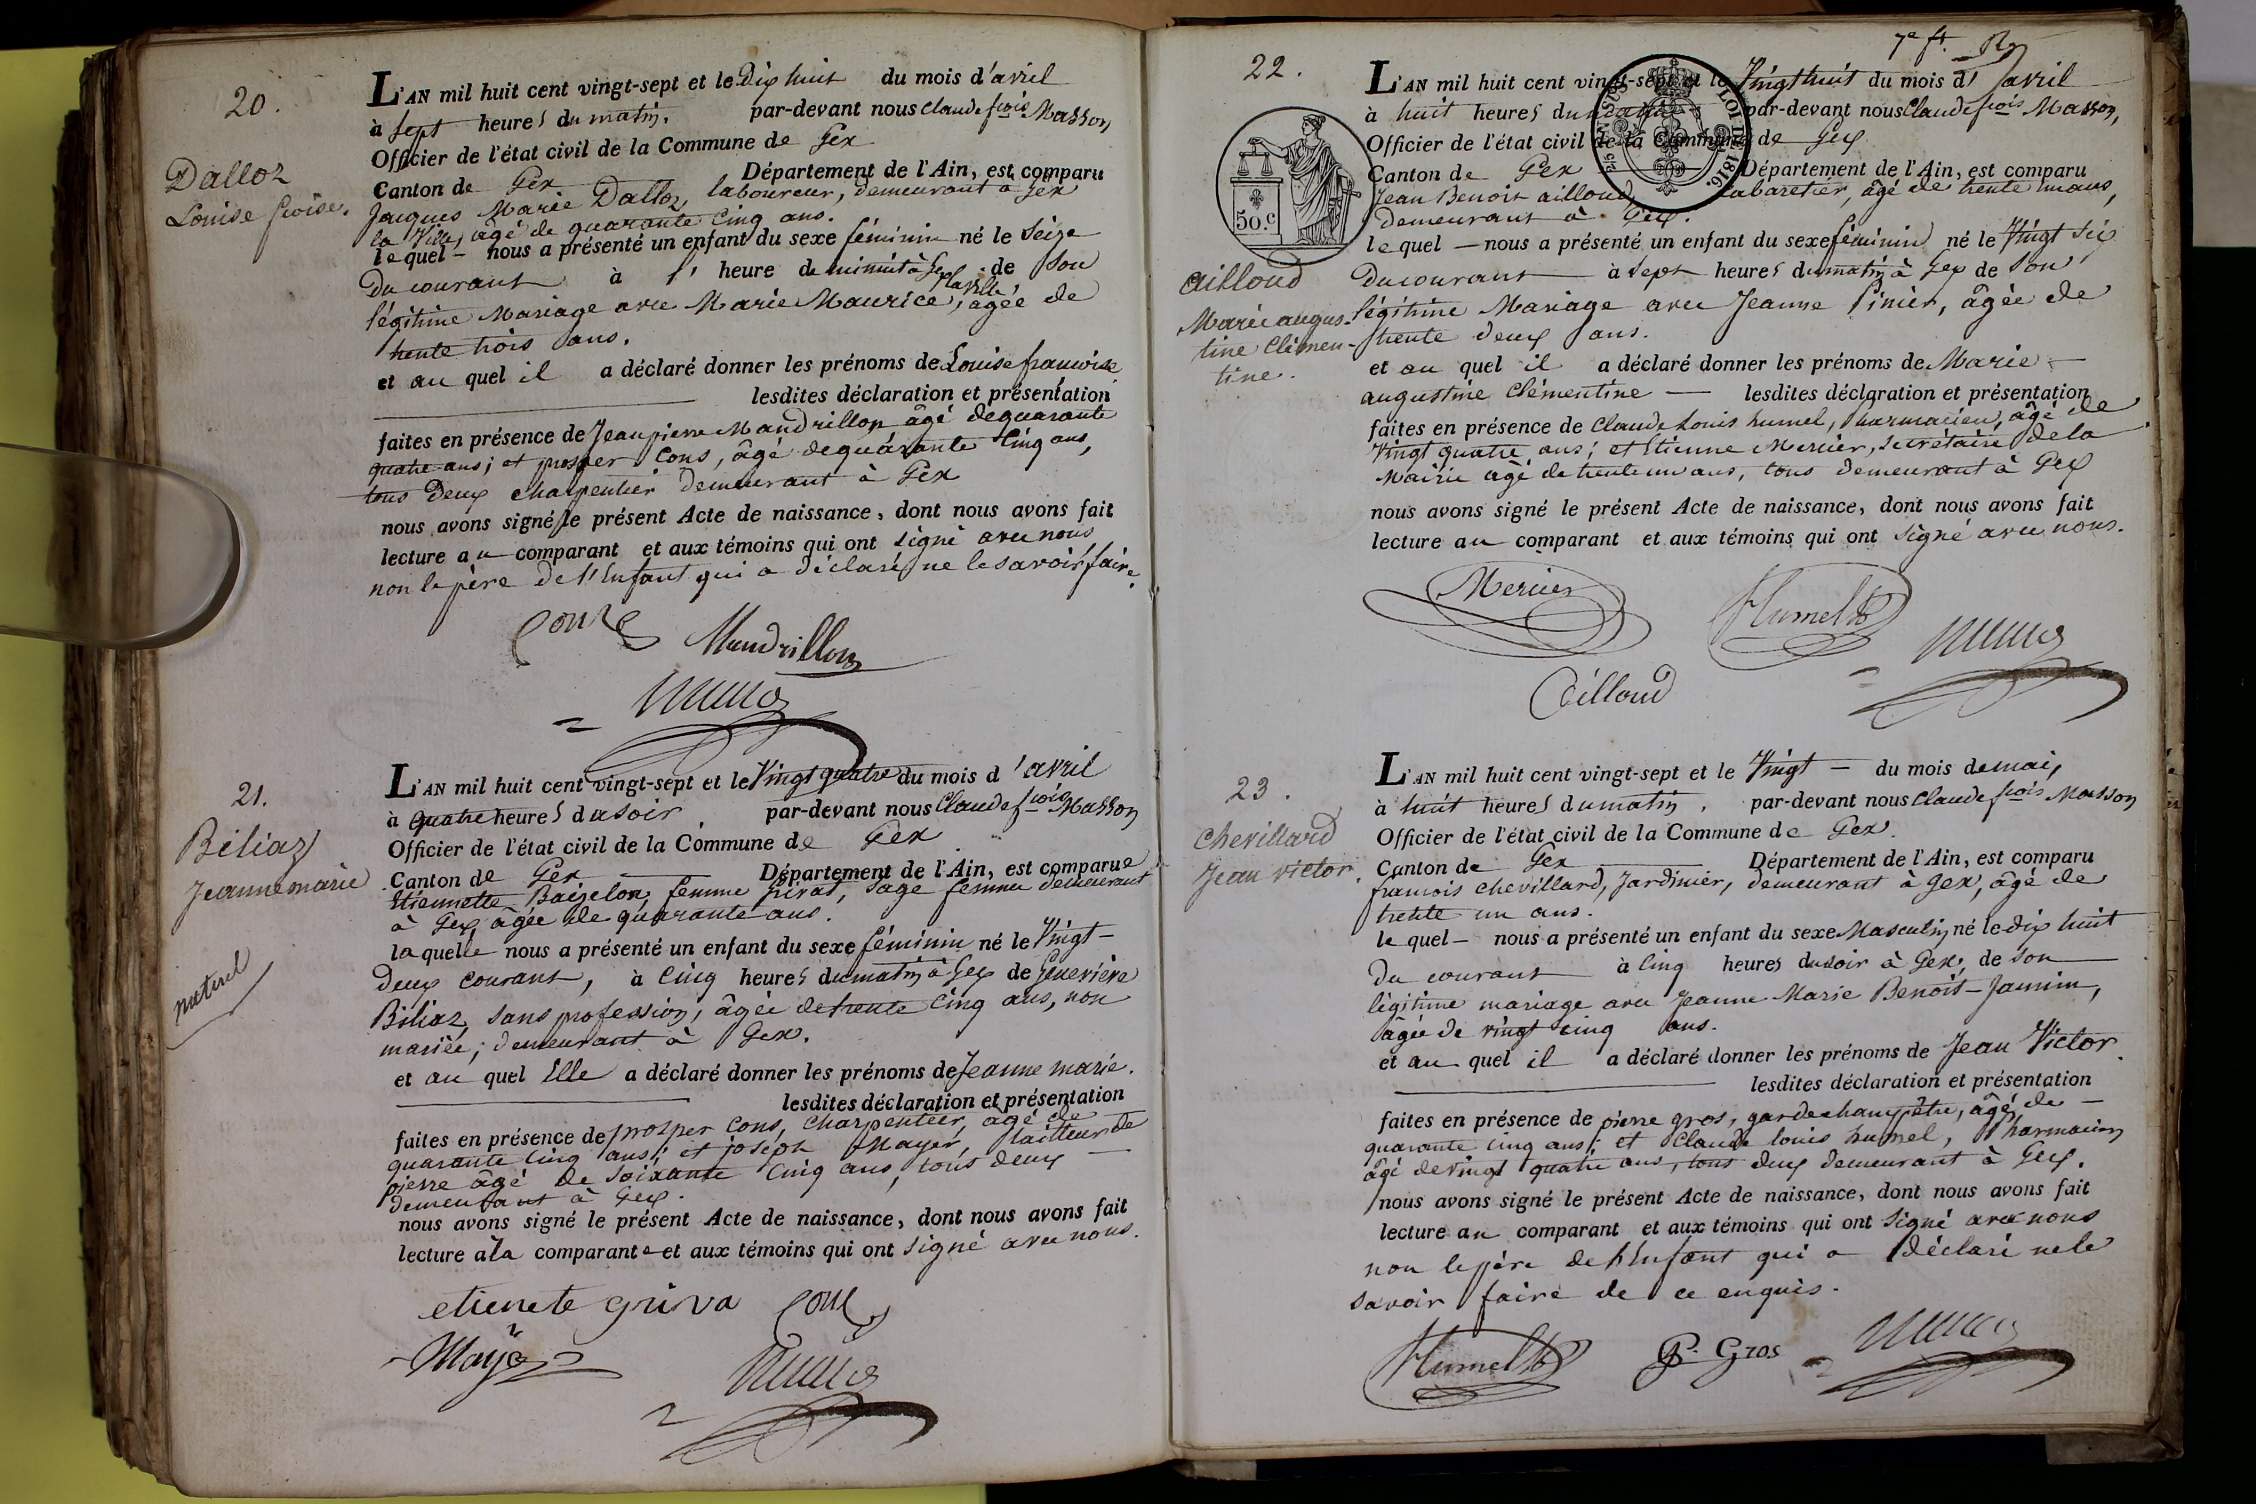 20.
Dalloz
Louise fçoise.
L'AN mil huit cent vingt-sept et le Dix huit du mois d'avril
à sept heures du matin, par-devant nous Claude fçois Masson,
Officier de l'état civil de la Commune de Gex
Canton de Gex Département de l'Ain, est comparu
Jacques Marie Dalloz, laboureur, demeurant à Gex
la Ville, âgé de quarante cinq ans.
lequel - nous a présenté un enfant du sexe féminin né le seize
du courant à l' heure de minuit à Gex la ville de son
légitime Mariage avec Marie Maurice, âgée de
trente trois ans.
et au quel il a déclaré donner les prénoms de Louise françoise
lesdites déclaration et présentation
faites en présence de Jean pierre Mandrillon âgé de quarante
quatre ans; et prosper Cons, âgé de quarante cinq ans,
tous Deux charpentier demeurant à Gex
nous avons signé le présent Acte de naissance, dont nous avons fait
lecture au comparant et aux témoins qui ont signé avec nous
non le père de l'Enfant qui a déclaré ne le savoir faire.
Cons Mandrillon
21.
Biliaz
Jeanne marie
naturel
L'AN mil huit cent vingt-sept et le Vingt quatre du mois d'avril
à quatre heures du soir par-devant nous Claude fçois Masson
Officier de l'état civil de la Commune de Gex
Canton de Gex Département de l'Ain, est comparue
Etiennette Baizelon, femme Girat, sage femme demeurant
à Gex, âgée de quarante ans.
laquelle nous a présenté un enfant du sexe féminin né le Vingt-
Deux courant, à cinq heures du matin à Gex de Geneviève
Biliaz, sans profession, âgée de trente cinq ans, non
mariée; demeurant à Gex.
et au quel Elle a déclaré donner les prénoms de Jeanne marie.
lesdites déclaration et présentation
faites en présence de prosper Cons, charpentier, âgé de
quarante cinq ans; et joseph Mayer, tailleur de
pierre âgé de soixante cinq ans, tous deux
demeurant à Gex.
nous avons signé le présent Acte de naissance, dont nous avons fait
lecture à la comparante et aux témoins qui ont signé avec nous.
etienete griva Cons
Mayer
7e ft.
22.
50.c
LOI DE 1816.
ailloud
Marie augus-
tine Clémen-
tine.
L'AN mil huit cent vingt-sept et le Vingt huit du mois d'avril
à huit heures du matin par-devant nous Claude fçois Masson,
Officier de l'état civil de la Commune de Gex
Canton de Gex Département de l'Ain, est comparu
Jean Benoit ailloud, Cabaretier, âgé de trente un ans,
demeurant à Gex.
lequel - nous a présenté un enfant du sexe féminin né le Vingt six
du courant à sept heures du matin à Gex de son
légitime Mariage avec Jeanne Pinier, âgée de
trente deux ans.
et au quel il a déclaré donner les prénoms de Marie
augustine Clémentine - lesdites déclaration et présentation
faites en présence de Claude Louis humel, pharmacien, âgé de
Vingt quatre ans; et Etienne Mercier, secrétaire de la
Mairie âgé de trente un ans, tous demeurant à Gex
nous avons signé le présent Acte de naissance, dont nous avons fait
lecture au comparant et aux témoins qui ont signé avec nous.
Mercier Humel
Ailloud
23.
Chevillard
Jean victor.
L'AN mil huit cent vingt-sept et le Vingt - du mois de mai,
à huit heures du matin, par-devant nous Claude fçois Masson
Officier de l'état civil de la Commune de Gex.
Canton de Gex Département de l'Ain, est comparu
françois chevillard, Jardinier, demeurant à Gex, âgé de
trente un ans.
lequel - nous a présenté un enfant du sexe Masculin né le dix huit
du courant à cinq heures du soir à Gex, de son
légitime mariage avec Jeanne Marie Benoit-Jannin,
âgée de vingt cinq ans.
et au quel il a déclaré donner les prénoms de Jean Victor.
lesdites déclaration et présentation
faites en présence de pierre gros, garde champêtre, âgé de
quarante cinq ans; et Claude louis humel, Pharmacien
âgé de vingt quatre ans, tous deux demeurant à Gex.
nous avons signé le présent Acte de naissance, dont nous avons fait
lecture au comparant et aux témoins qui ont signé avec nous
non le père de l'Enfant qui a déclaré ne le
savoir faire de ce enquis.
Humel P. Gros